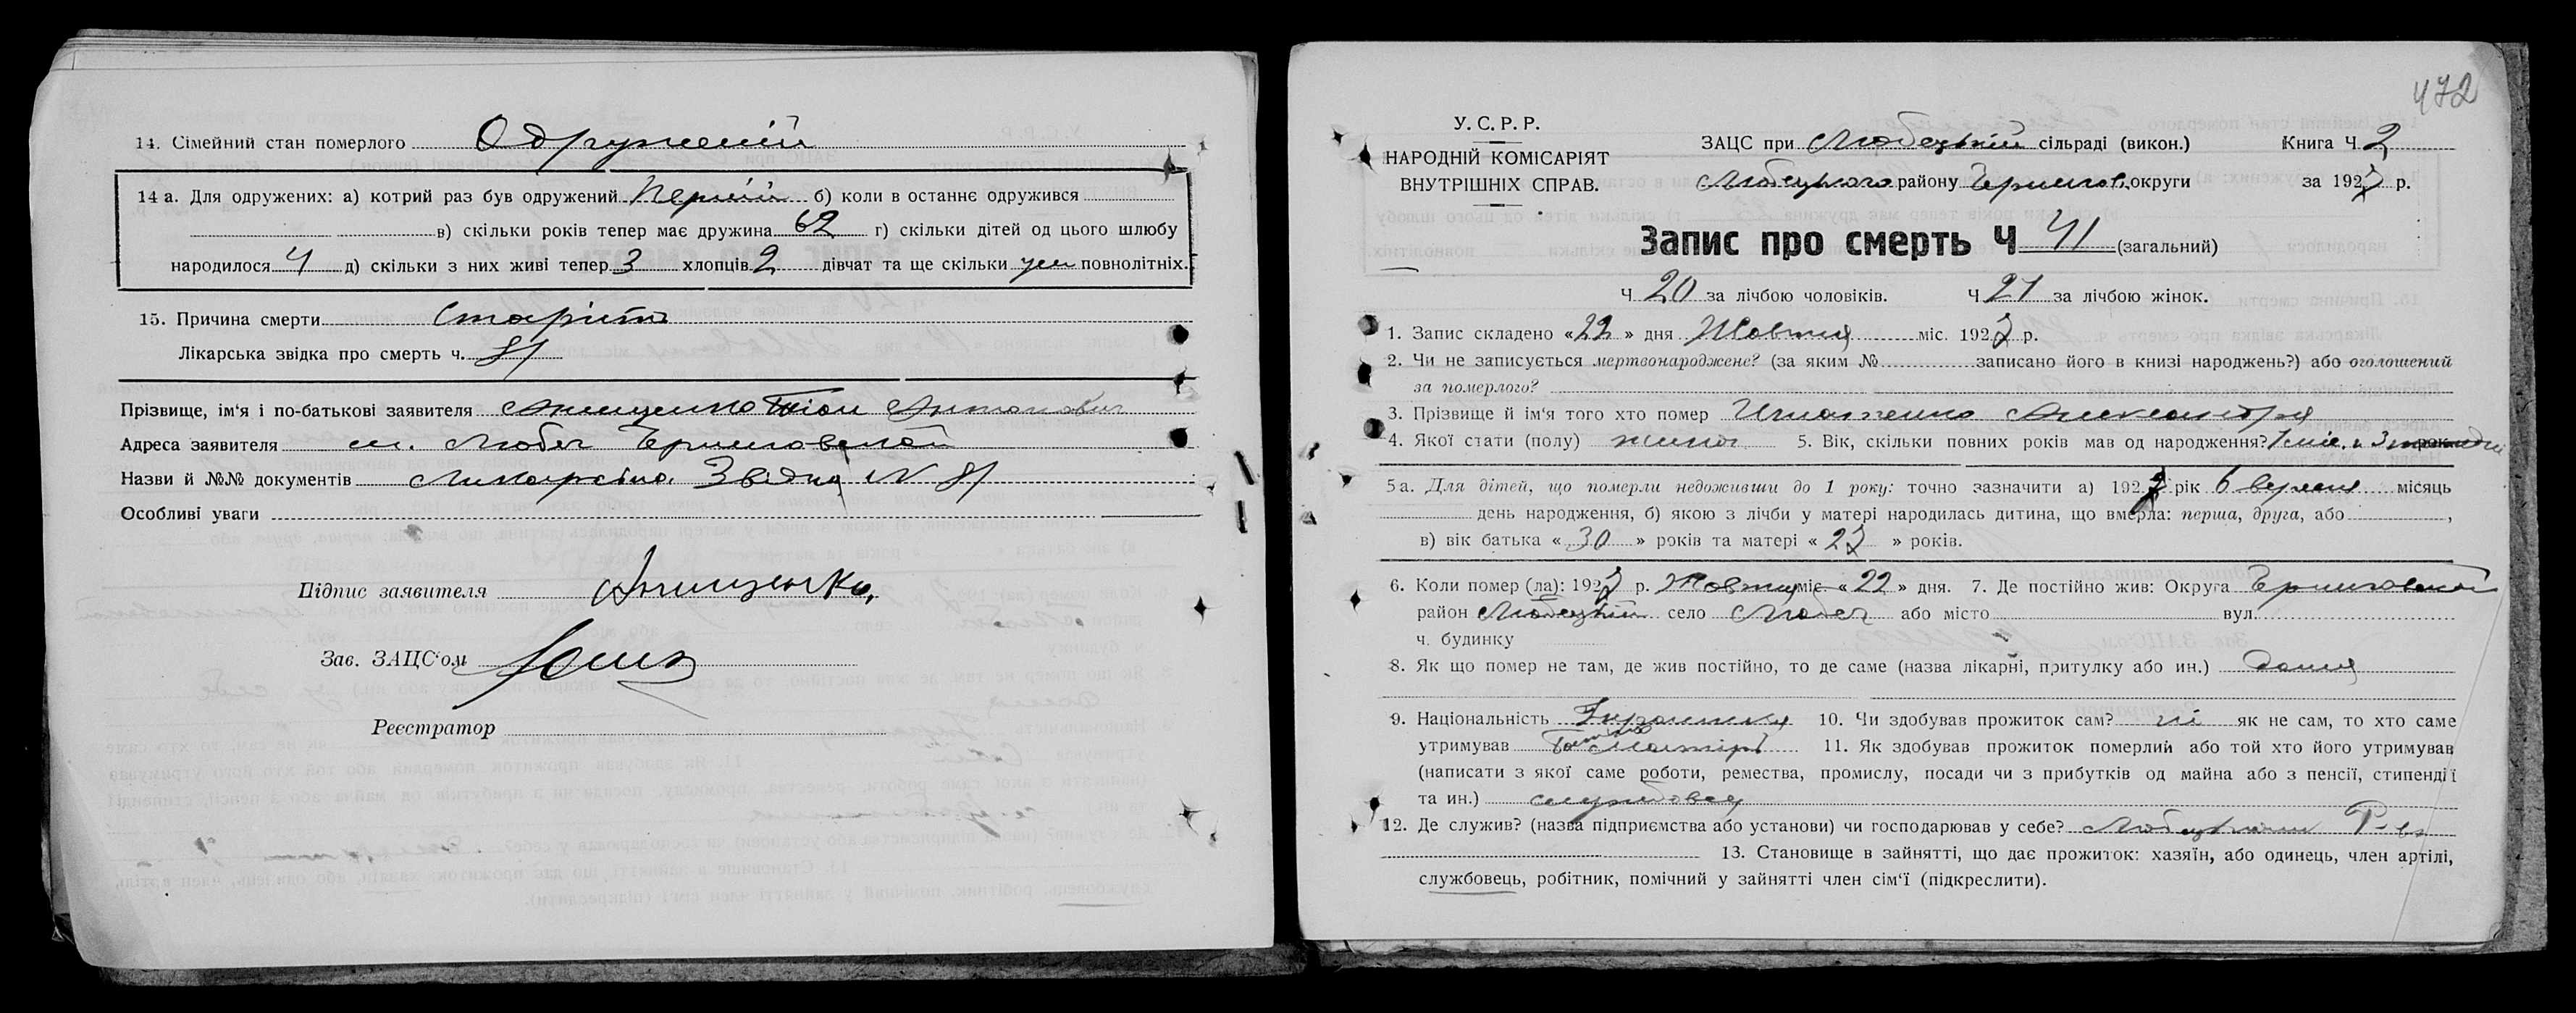 14. Сімейний стан померлого Одружений
14 а. Для одружених: а) котрий раз був одружений Перший б) коли в останнє одружився
в) скільки років тепер має дружина 62 г) скільки дітей од цього шлюбу
народилося 4 д) скільки з них живі тепер 3 хлопців 2 дівчат та ще скільки повнолітніх.
15. Причина смерти Старість
Лікарська звідка про смерть ч. 81
Прізвище, ім'я і по-батькові заявителя Антонович
Адреса заявителя м. Любеч
Назви й №№ документів Ликарська Звідка N 81
Особливі уваги
Підпис заявителя
Зав. ЗАЦС'ом
Реєстратор
472
У. С. Р. Р.
НАРОДНІЙ КОМІСАРІЯТ
ВНУТРІШНІХ СПРАВ.
ЗАЦС при Любецький сільраді (викон.) Книга Ч. 2
Любецького району Чернигов. округи за 1927 р.
Запис про смерть Ч 41 (загальний)
Ч 20 за лічбою чоловіків. Ч 21 за лічбою жінок.
1. Запис складено «22» дня Жовтня міс. 1927 р.
2. Чи не записується мертвонароджене? (за яким № записано його в книзі народжень?) або оголошений
за померлого?
3. Прізвище й ім'я того хто помер Игнатенко Александра
4. Якої стати (полу) жиноч 5. Вік, скільки повних років мав од народження? 1 міс. и 3
5 а. Для дітей, що померли недоживши до 1 року: точно зазначити а) 1927 рік 6 вересня місяць
день народження, б) якою з лічби у матері народилась дитина, що вмерла: перша, друга, або ,
в) вік батька «30» років та матері «27» років.
6. Коли помер (ла): 1927 р. Жовтня міс «22» дня. 7. Де постійно жив: Округа
район Любецький село Любеч або місто вул.
ч. будинку
8. Як що помер не там, де жив постійно, то де саме (назва лікарні, притулку або ин.) дома
9. Національність Украинка 10. Чи здобував прожиток сам? ні як не сам, то хто саме
утримував 11. Як здобував прожиток померлий або той хто його утримував
(написати з якої саме роботи, ремества, промислу, посади чи з прибутків од майна або з пенсії, стипендії
та ин.) службовец
12. Де служив? (назва підприємства або установи) чи господарював у себе?
13. Становище в зайнятті, що дає прожиток: хазяїн, або одинець, член артілі,
службовець, робітник, помічний у зайнятті член сім'ї (підкреслити).